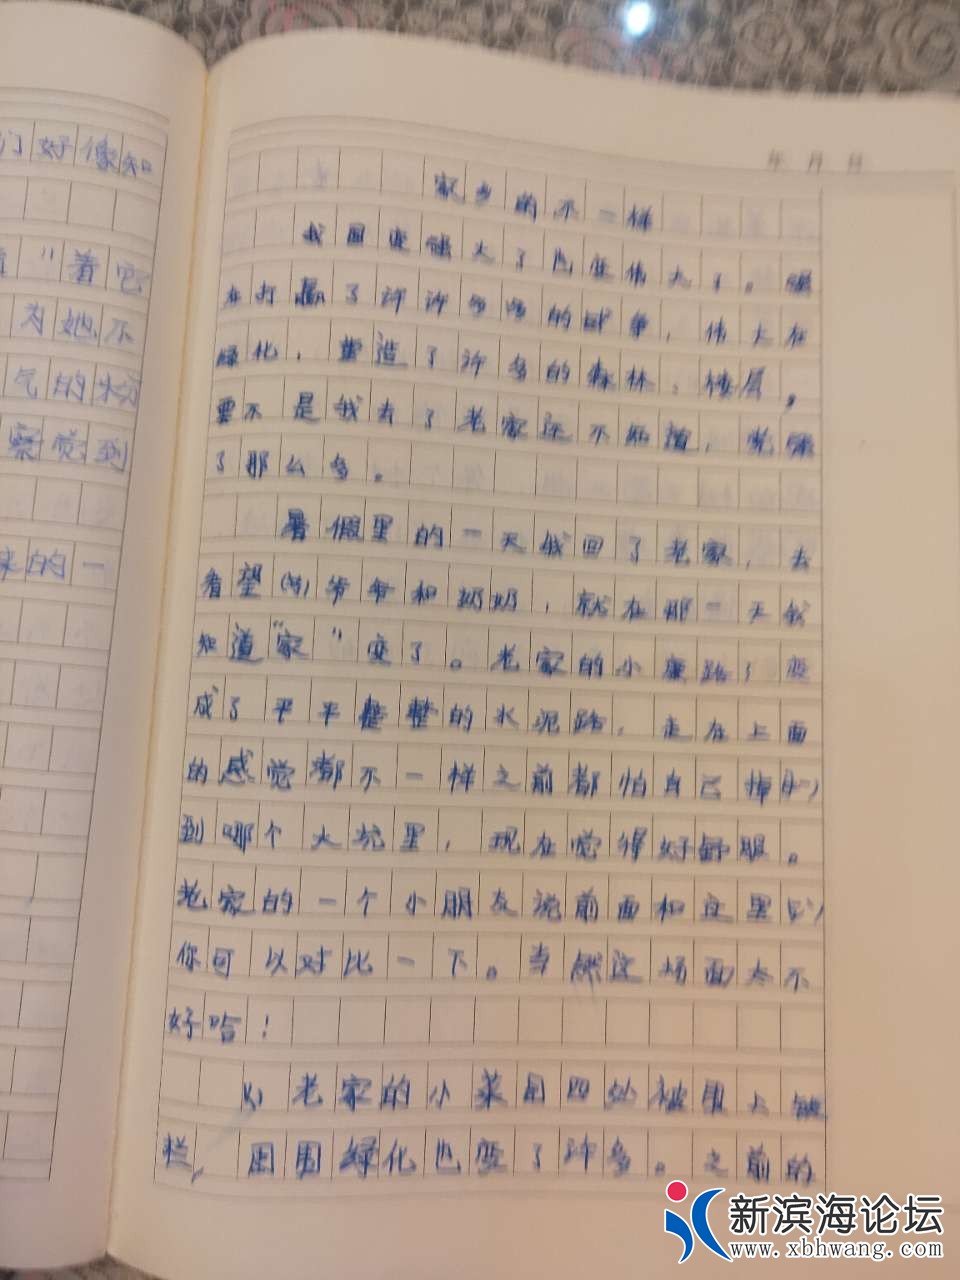 们好像知
"着它
为她不
气的物
察觉到
来的一
年 月 日
家乡的不一样
我国变强大了也变伟大了。强
在打赢了许许多多的战争,伟大在
绿化,营造了许多的森林,楼房。
要不是我去了老家还不知道,
了那么多。
暑假里的一天我回了老家,去
看望 爷爷和奶奶,就在那一天我
知道"家"变了。老家的小 路,变
成了平平整整的水泥路,走在上面
的感觉都不一样之前都怕自己掉
到哪个大坑里,现在觉得好舒服。
老家的一个小朋友说前面和这里
你可以对比一下。当然这场面太不
好哈!
老家的小菜园四处被围上
栏,周围绿化也变了许多。之前的
新滨海论坛
www.xbhwang.com